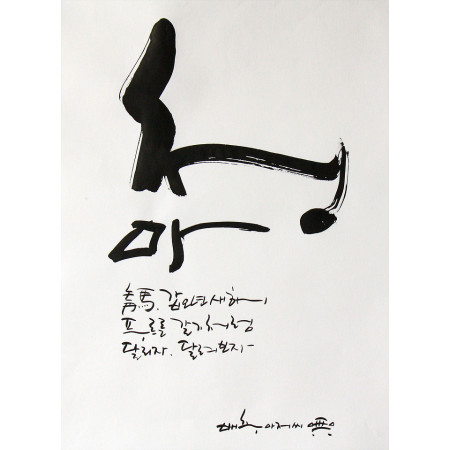 청
마
靑馬. 갑오년 새해,
푸르른 갈기처럼
달리자. 달려보자
아저씨